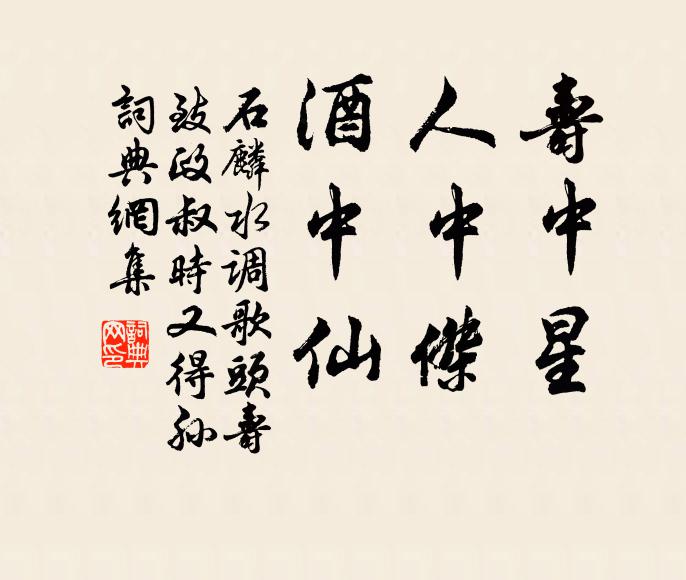 壽中星
人中傑
酒中仙
石麟水调歌頭壽
致政叔時又得孙
詞典網集
詞典網印